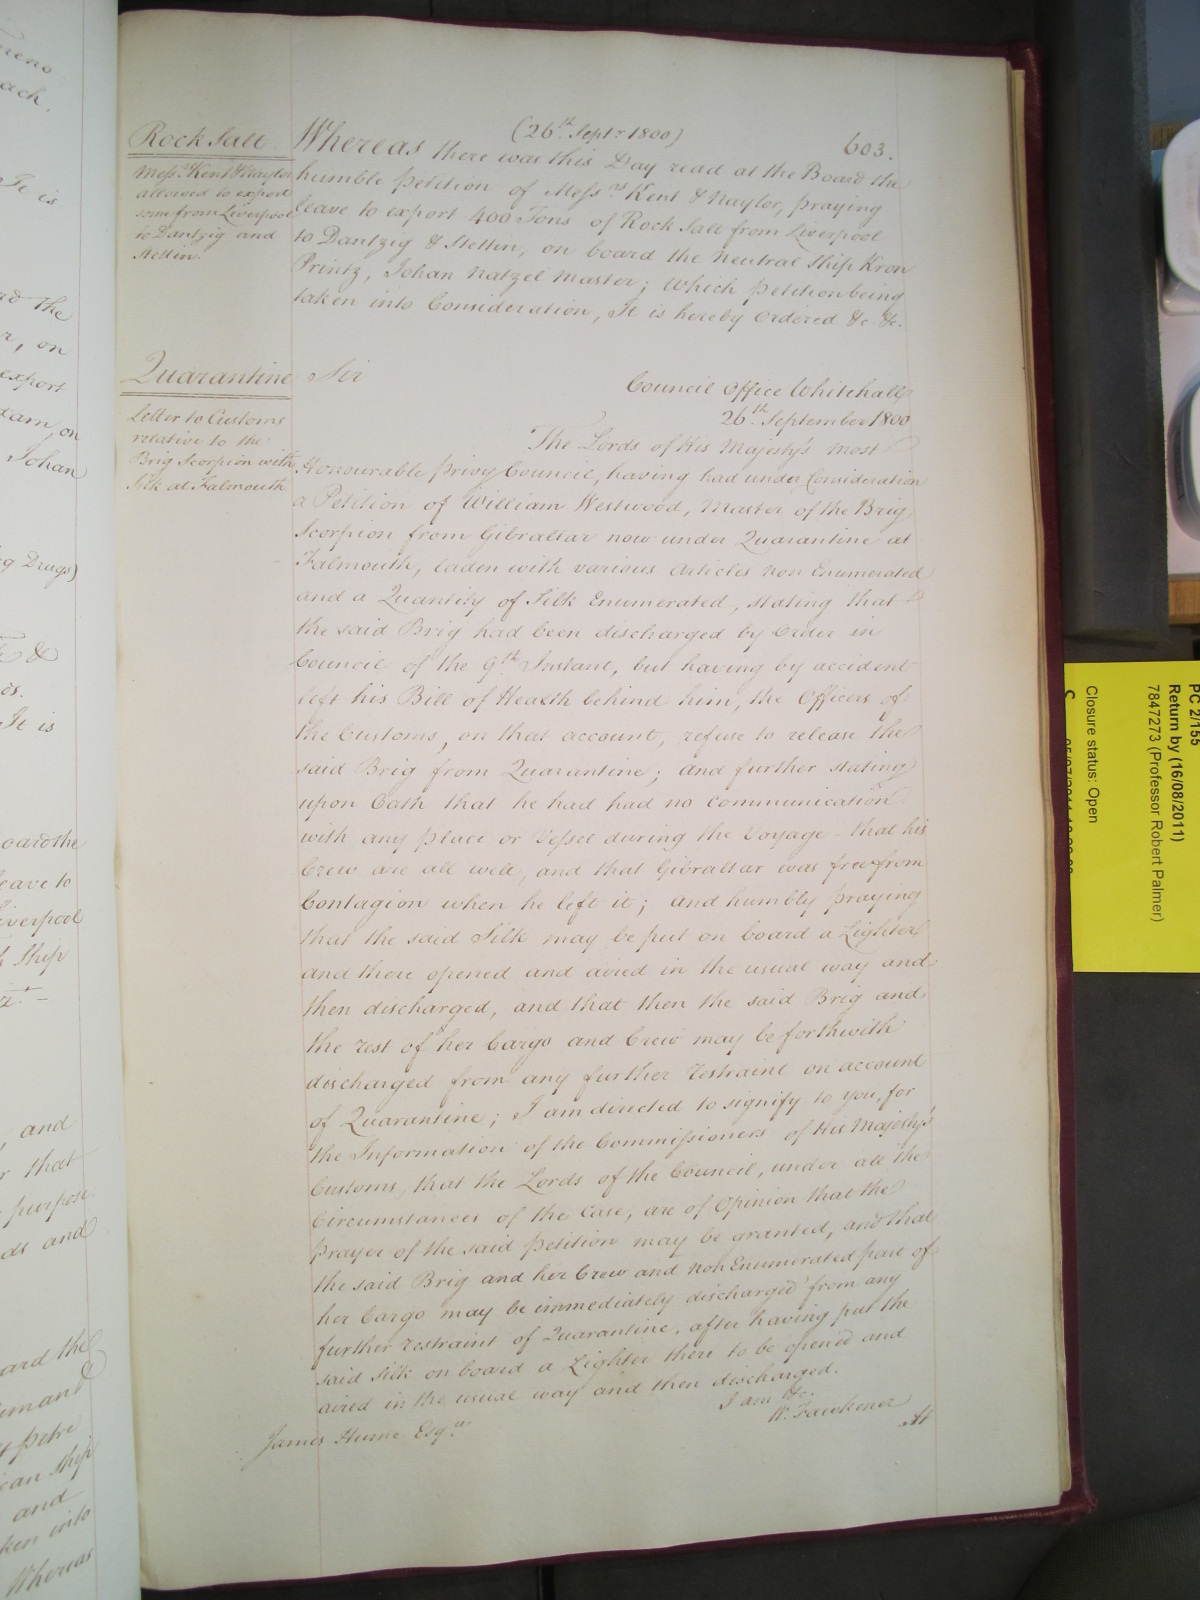 (26th Septr 1800)
603.
Rock Salt
Messrs Kent & Naylor
allowed to export
some from Liverpool
to Dantzig and
Stettin.
Whereas there was this Day read at the Board the
humble Petition of Messrs Kent & Naylor, praying
leave to export 400 Tons of Rock Salt from Liverpool
to Dantzig & Stettin, on board the neutral Ship Kron
Printz, Johan Natzel Master; which Petition being
taken into Consideration, It is hereby Ordered &c. &c.
Quarantine
Letter to Customs
relative to the
Brig Scorpion with
Silk at Falmouth
Sir
Council Office Whitehall
26th September 1800
The Lords of His Majesty's most
Honourable Privy Council, having had under Consideration
a Petition of William Westwood, Master of the Brig
Scorpion from Gibraltar now under Quarantine at
Falmouth, laden with various Articles non Enumerated
and a Quantity of Silk Enumerated, stating that
the said Brig had been discharged by Order in
Council of the 9th Instant, but having by accident
left his Bill of Health behind him, the Officers of
the Customs, on that account, refuse to release the
said Brig from Quarantine; and further stating
upon Oath that he had had no communication
with any place or Vessel during the Voyage - that his
Crew are all well, and that Gibraltar was free from
Contagion when he left it; and humbly praying
that the said Silk may be put on board a Lighter
and there opened and aired in the usual way and
then discharged, and that then the said Brig and
the rest of her Cargo and Crew may be forthwith
discharged from any further restraint on account
of Quarantine; I am directed to signify to you, for
the Information of the Commissioners of His Majesty's
Customs, that the Lords of the Council, under all the
Circumstances of the Case, are of Opinion that the
prayer of the said Petition may be granted, and that
the said Brig and her Crew and non Enumerated part of
her Cargo may be immediately discharged from any
further restraint of Quarantine, after having put the
said Silk on board a Lighter there to be opened and
aired in the usual way and then discharged.
I am &c.
W. Fawkener
James Hume Esqr
At
ach.
It is
the
on
export
on
Johan
Drugs)
&
It is
the
leave to
Liverpool
Ship
and
that
purpose
and
the
Petre
Ship
and
into
Whereas
PC 2/155
Return by (16/08/2011)
7847273 (Professor Robert Palmer)
Closure status: Open